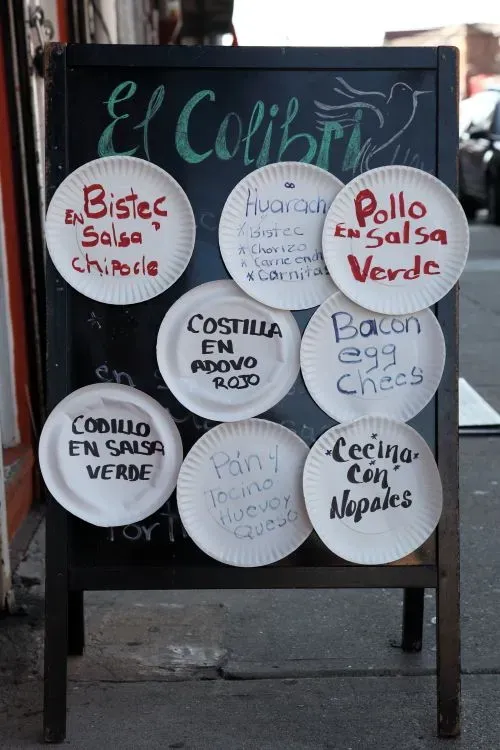 El Colibri
Bistec
EN Salsa
chipocle
Huarach
* Bistec
* Chorizo
* Carne en
* Carnitas
Pollo
EN Salsa
Verde
COSTILLA
EN
ADOVO
ROJO
Bacon
egg
Chees
CODILLO
EN SALSA
VERDE
Pán y
Tocino
Huevo y
Queso
*Cecina*
Con
Nopales
en
Tor